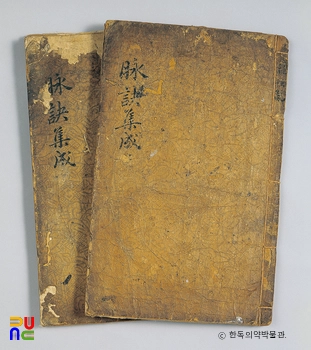 脉訣集成
脉訣集成
PUNC
© 한독의약박물관.